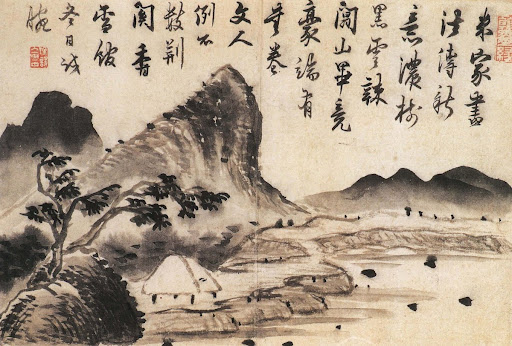 米家畫
法傳新
意濃樹
黑雲疎
闊山畢竟
豪端有
書卷
文人
例不
數荆
關香
雪館
冬日